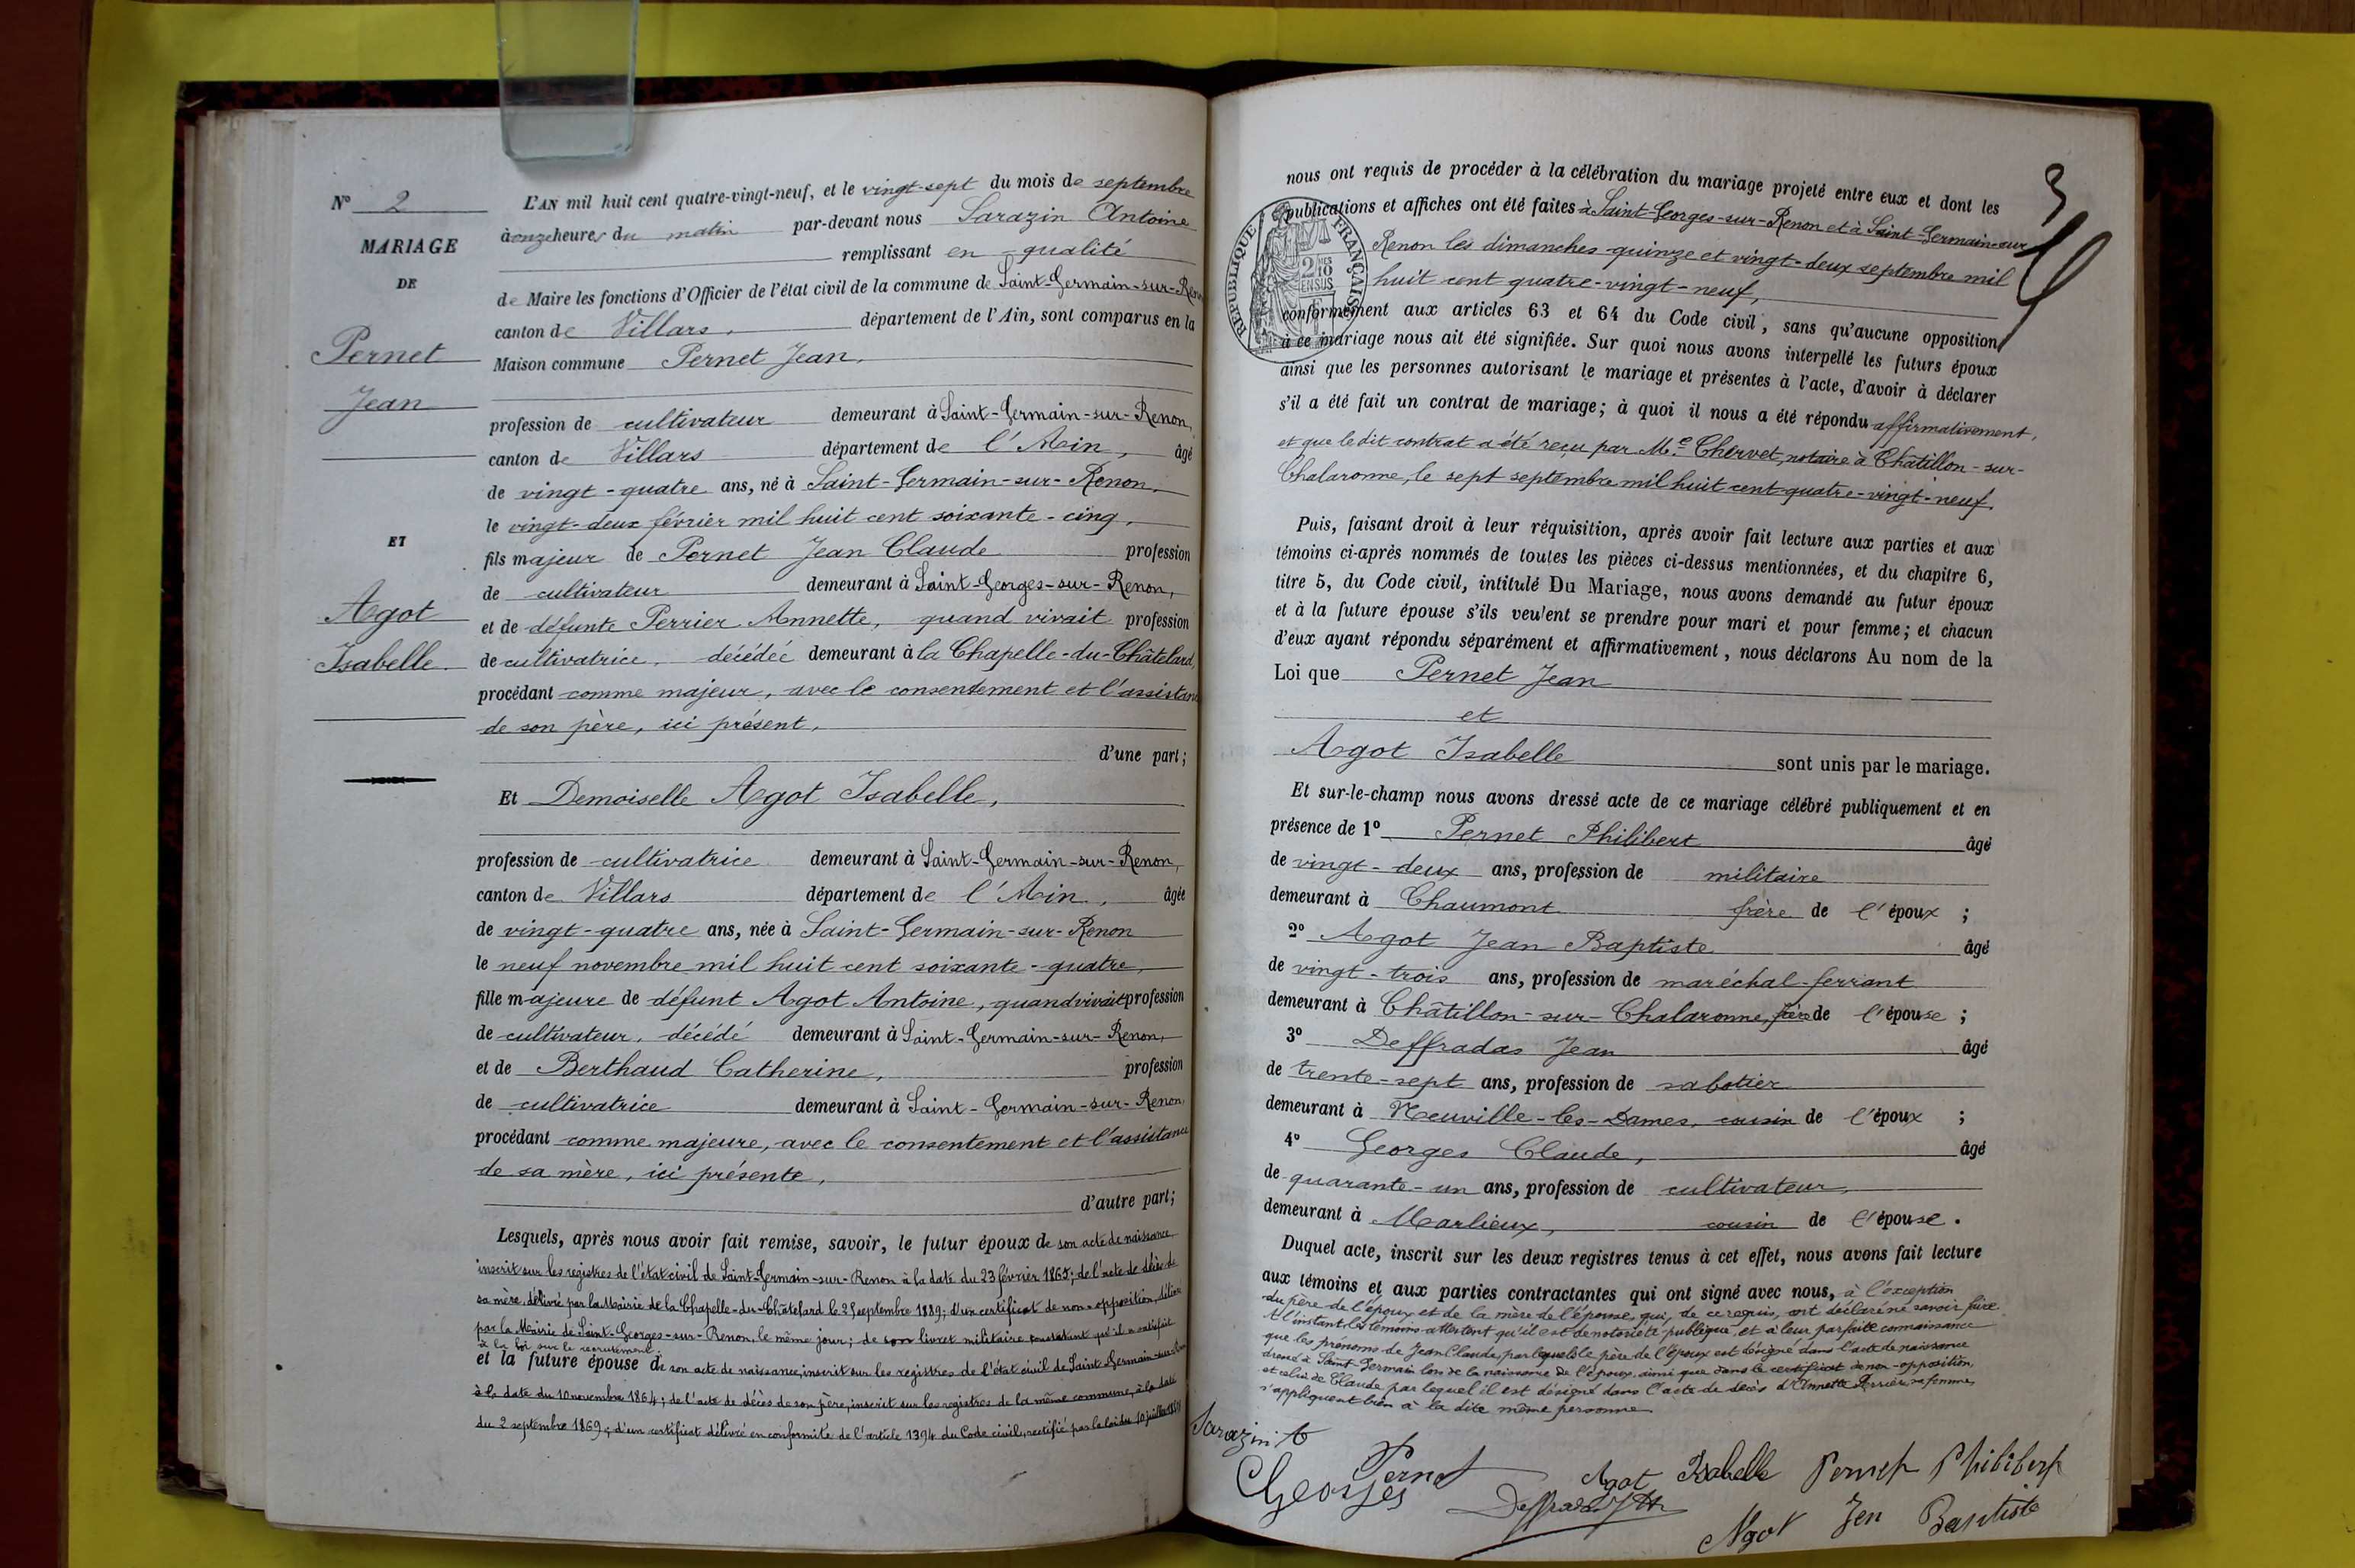 N° 2
MARIAGE
DE
Pernet
Jean
ET
Agot
Isabelle
L'AN mil huit cent quatre-vingt-neuf, et le vingt-sept du mois de septembre
à onze heures du matin par-devant nous Sarazin Antoine
remplissant en qualité
de Maire les fonctions d'Officier de l'état civil de la commune de Saint-Germain-sur-Renon
canton de Villars, département de l'Ain, sont comparus en la
Maison commune Pernet Jean,
profession de cultivateur demeurant à Saint-Germain-sur-Renon,
canton de Villars département de l'Ain, âgé
de vingt-quatre ans, né à Saint-Germain-sur-Renon,
le vingt-deux février mil huit cent soixante-cinq,
fils majeur de Pernet Jean Claude profession
de cultivateur demeurant à Saint-Georges-sur-Renon,
et de défunte Perrier Annette, quand vivait profession
de cultivatrice, décédée demeurant à la Chapelle-du-Châtelard,
procédant comme majeur, avec le consentement et l'assistance
de son père, ici présent,
d'une part;
Et Demoiselle Agot Isabelle,
profession de cultivatrice demeurant à Saint-Germain-sur-Renon,
canton de Villars département de l'Ain, âgée
de vingt-quatre ans, née à Saint-Germain-sur-Renon
le neuf novembre mil huit cent soixante-quatre,
fille majeure de défunt Agot Antoine, quand vivait profession
de cultivateur, décédé demeurant à Saint-Germain-sur-Renon,
et de Berthaud Catherine, profession
de cultivatrice demeurant à Saint-Germain-sur-Renon,
procédant comme majeure, avec le consentement et l'assistance
de sa mère, ici présente,
d'autre part;
Lesquels, après nous avoir fait remise, savoir, le futur époux de son acte de naissance
inscrit sur les registres de l'état civil de Saint-Germain-sur-Renon à la date du 23 février 1865; de l'acte de décès de
sa mère délivré par la Mairie de la Chapelle-du-Châtelard le 2 septembre 1889; d'un certificat de non-opposition, délivré
par la Mairie de Saint-Georges-sur-Renon, le même jour; de son livret militaire constatant qu'il a satisfait
à la loi sur le recrutement,
et la future épouse de son acte de naissance, inscrit sur les registres de l'état civil de Saint-Germain-sur-Renon
à la date du 10 novembre 1864; de l'acte de décès de son père, inscrit sur les registres de la même commune, à la date
du 2 septembre 1869; d'un certificat délivré en conformité de l'article 1394 du Code civil, rectifié par la loi du 10 juillet
3
nous ont requis de procéder à la célébration du mariage projeté entre eux et dont les
publications et affiches ont été faites à Saint-Georges-sur-Renon et à Saint-Germain-sur-
Renon les dimanches quinze et vingt-deux septembre mil
huit cent quatre-vingt-neuf,
RÉPUBLIQUE FRANÇAISE
2 MES
10
EN SUS
conformément aux articles 63 et 64 du Code civil, sans qu'aucune opposition
à ce mariage nous ait été signifiée. Sur quoi nous avons interpellé les futurs époux
ainsi que les personnes autorisant le mariage et présentes à l'acte, d'avoir à déclarer
s'il a été fait un contrat de mariage; à quoi il nous a été répondu affirmativement,
et que le dit contrat a été reçu par Me Chervet, notaire à Châtillon-sur-
Chalaronne, le sept septembre mil huit cent quatre-vingt-neuf.
Puis, faisant droit à leur réquisition, après avoir fait lecture aux parties et aux
témoins ci-après nommés de toutes les pièces ci-dessus mentionnées, et du chapitre 6,
titre 5, du Code civil, intitulé Du Mariage, nous avons demandé au futur époux
et à la future épouse s'ils veulent se prendre pour mari et pour femme; et chacun
d'eux ayant répondu séparément et affirmativement, nous déclarons Au nom de la
Loi que Pernet Jean
et
Agot Isabelle sont unis par le mariage.
Et sur-le-champ nous avons dressé acte de ce mariage célébré publiquement et en
présence de 1° Pernet Philibert âgé
de vingt-deux ans, profession de militaire
demeurant à Chaumont frère de l'époux;
2° Agot Jean Baptiste âgé
de vingt-trois ans, profession de maréchal-ferrant
demeurant à Châtillon-sur-Chalaronne, frère de l'épouse;
3° Deffradas Jean âgé
de trente-sept ans, profession de sabotier
demeurant à Neuville-les-Dames, cousin de l'époux;
4° Georges Claude, âgé
de quarante-un ans, profession de cultivateur,
demeurant à Marlieux, cousin de l'épouse.
Duquel acte, inscrit sur les deux registres tenus à cet effet, nous avons fait lecture
aux témoins et aux parties contractantes qui ont signé avec nous, à l'exception
du père de l'époux et de la mère de l'épouse, qui, de ce requis, ont déclaré ne savoir faire.
A l'instant les témoins attestent qu'il est de notoriété publique, et à leur parfaite connaissance
que les prénoms de Jean Claude, par lesquels le père de l'époux est désigné dans l'acte de naissance
dressé à Saint-Germain lors de la naissance de l'époux, ainsi que dans le certificat de non-opposition,
et celui de Claude par lequel il est désigné dans l'acte de décès d'Annette Perrier sa femme,
s'appliquent bien à la dite même personne
Sarazin A
Pernet
Agot Isabelle Pernet Philibert
Georges
Deffradas
Agot Jen Baptiste